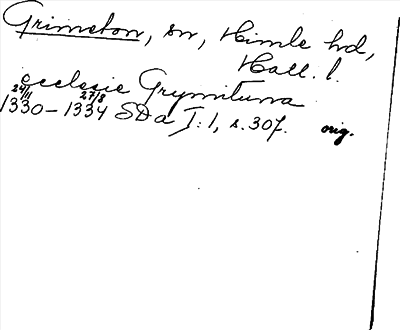 Grimeton, sn, Himle hd,
Hall. l.
ecclesie Grymituna
24/11 27/8
1330–1334 SDa I:1, s. 307. orig.